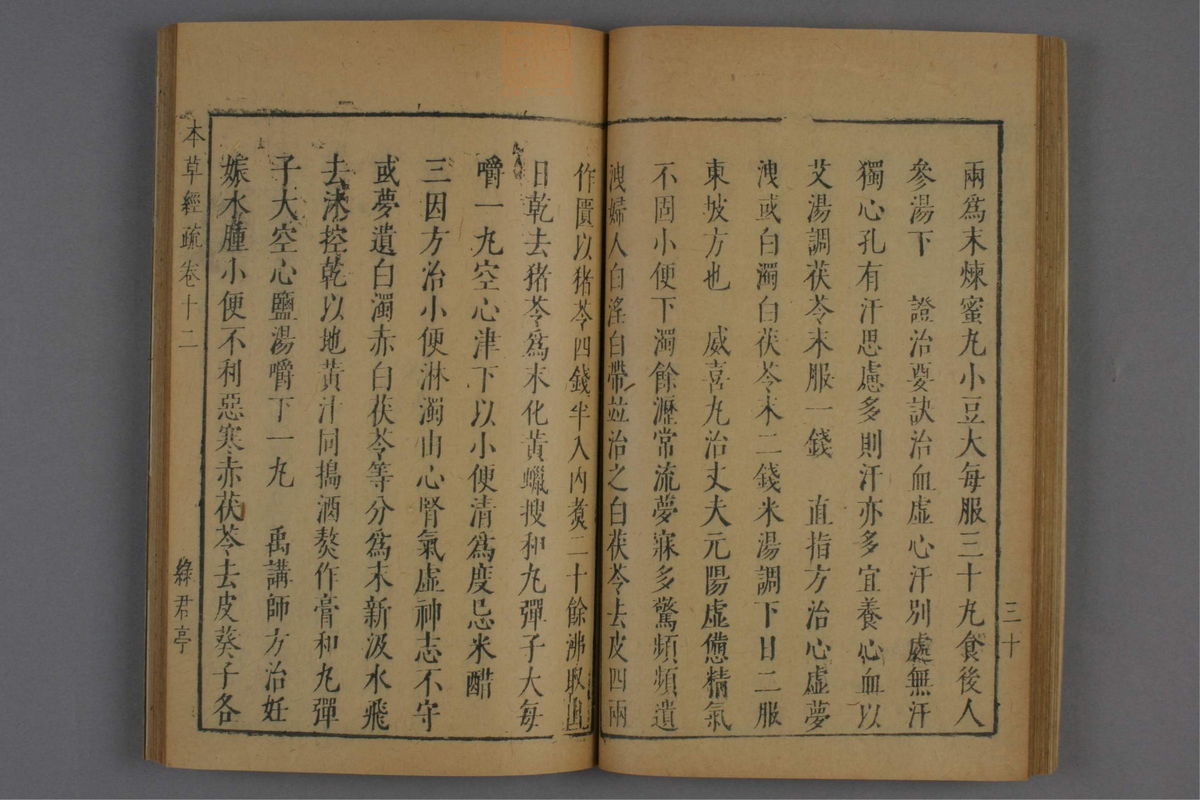 三十
兩爲末煉蜜丸小豆大每服三十丸食後人
參湯下　證治要訣治血虛心汗別處無汗
獨心孔有汗思慮多則汗亦多宜養心血以
艾湯調茯苓末服一錢　直指方治心虛夢
洩或白濁白茯苓末二錢米湯調下日二服
東坡方也　威喜丸治丈夫元陽虛憊精氣
不固小便下濁餘瀝常流夢寐多驚頻頻遺
洩婦人白淫白帶並治之白茯苓去皮四兩
作匱以猪苓四錢半入內煑二十餘沸取出
日乾去猪苓爲末化黃蠟搜和丸彈子大每
嚼一丸空心津下以小便清爲度忌米醋
三因方治小便淋濁由心腎氣虛神志不守
或夢遺白濁赤白茯苓等分爲末新汲水飛
去沬控乾以地黃汁同搗酒熬作膏和丸彈
子大空心鹽湯嚼下一丸　禹講師方治妊
娠水腫小便不利惡寒赤茯苓去皮葵子各
本草經疏卷十二
綠君亭